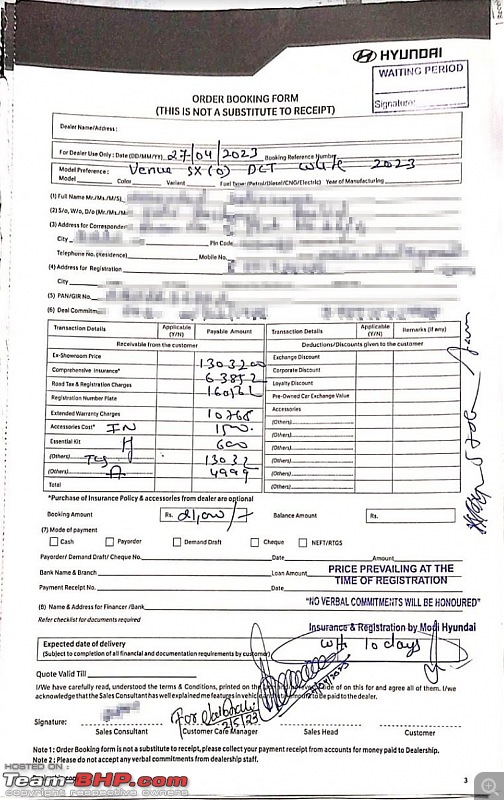 HYUNDAI
WAITING PERIOD
Signature:
ORDER BOOKING FORM
(THIS IS NOT A SUBSTITUTE TO RECEIPT)
Dealer Name/Address:
For Dealer Use Only : Date (DD/MM/YY) 27/04/2023 Booking Reference Number
Venue SX (O) DCT White 2023
Model Preference:
Model Color Variant Fuel Type: (Petrol/Diesel/CNG/Electric) Year of Manufacturing
(1) Full Name Mr./Ms./M/S)
(2) S/o, W/o, D/o (Mr./Ms./M
(3) Address for Corresponden
City Pin Code
Telephone No. (Residence) Mobile No.
(4) Address for Registration
City
(5) PAN/GIR No.
(6) Deal Commitm
Transaction Details Applicable (Y/N) Payable Amount Transaction Details Applicable (Y/N) Remarks (if any)
Receivable from the customer Deductions/Discounts given to the customer
Ex-Showroom Price 1303200 Exchange Discount
Comprehensive Insurance* 63852 Corporate Discount
Road Tax & Registration Charges Loyalty Discount
Registration Number Plate Pre-Owned Car Exchange Value
Extended Warranty Charges 10768 Accessories
Accessories Cost* (Others)
Essential Kit 600 (Others)
(Others) TCS 13032 (Others)
(Others) 4999 (Others)
Total (Others)
*Purchase of Insurance Policy & accessories from dealer are optional
Booking Amount Rs. 21,000/- Balance Amount Rs.
(7) Mode of payment
Cash Payorder Demand Draft Cheque NEFT/RTGS
Payorder/ Demand Draft/ Cheque No. Date Amount
Bank Name & Branch Loan Amount PRICE PREVAILING AT THE
Payment Receipt No. Date TIME OF REGISTRATION
(8) Name & Address for Financer /Bank "NO VERBAL COMMITMENTS WILL BE HONOURED"
Refer checklist for documents required
Insurance & Registration by Modi Hyundai
Expected date of delivery 10 days
(Subject to completion of all financial and documentation requirements by customer)
Quote Valid Till
I/We have carefully read, understood the terms & Conditions, printed on the of this for and agree all of them. I/we
acknowledge that the Sales Consultant has well explained me features in vehicle to be paid to the dealer.
Signature:
Sales Consultant Customer Care Manager Sales Head Customer
Note 1 : Order Booking form is not a substitute to receipt, please collect your payment receipt from accounts for money paid to Dealership.
Note 2 : Please do not accept any verbal commitments from dealership staff.
3
HOSTED ON :
Team-BHP.com
copyright respective owners